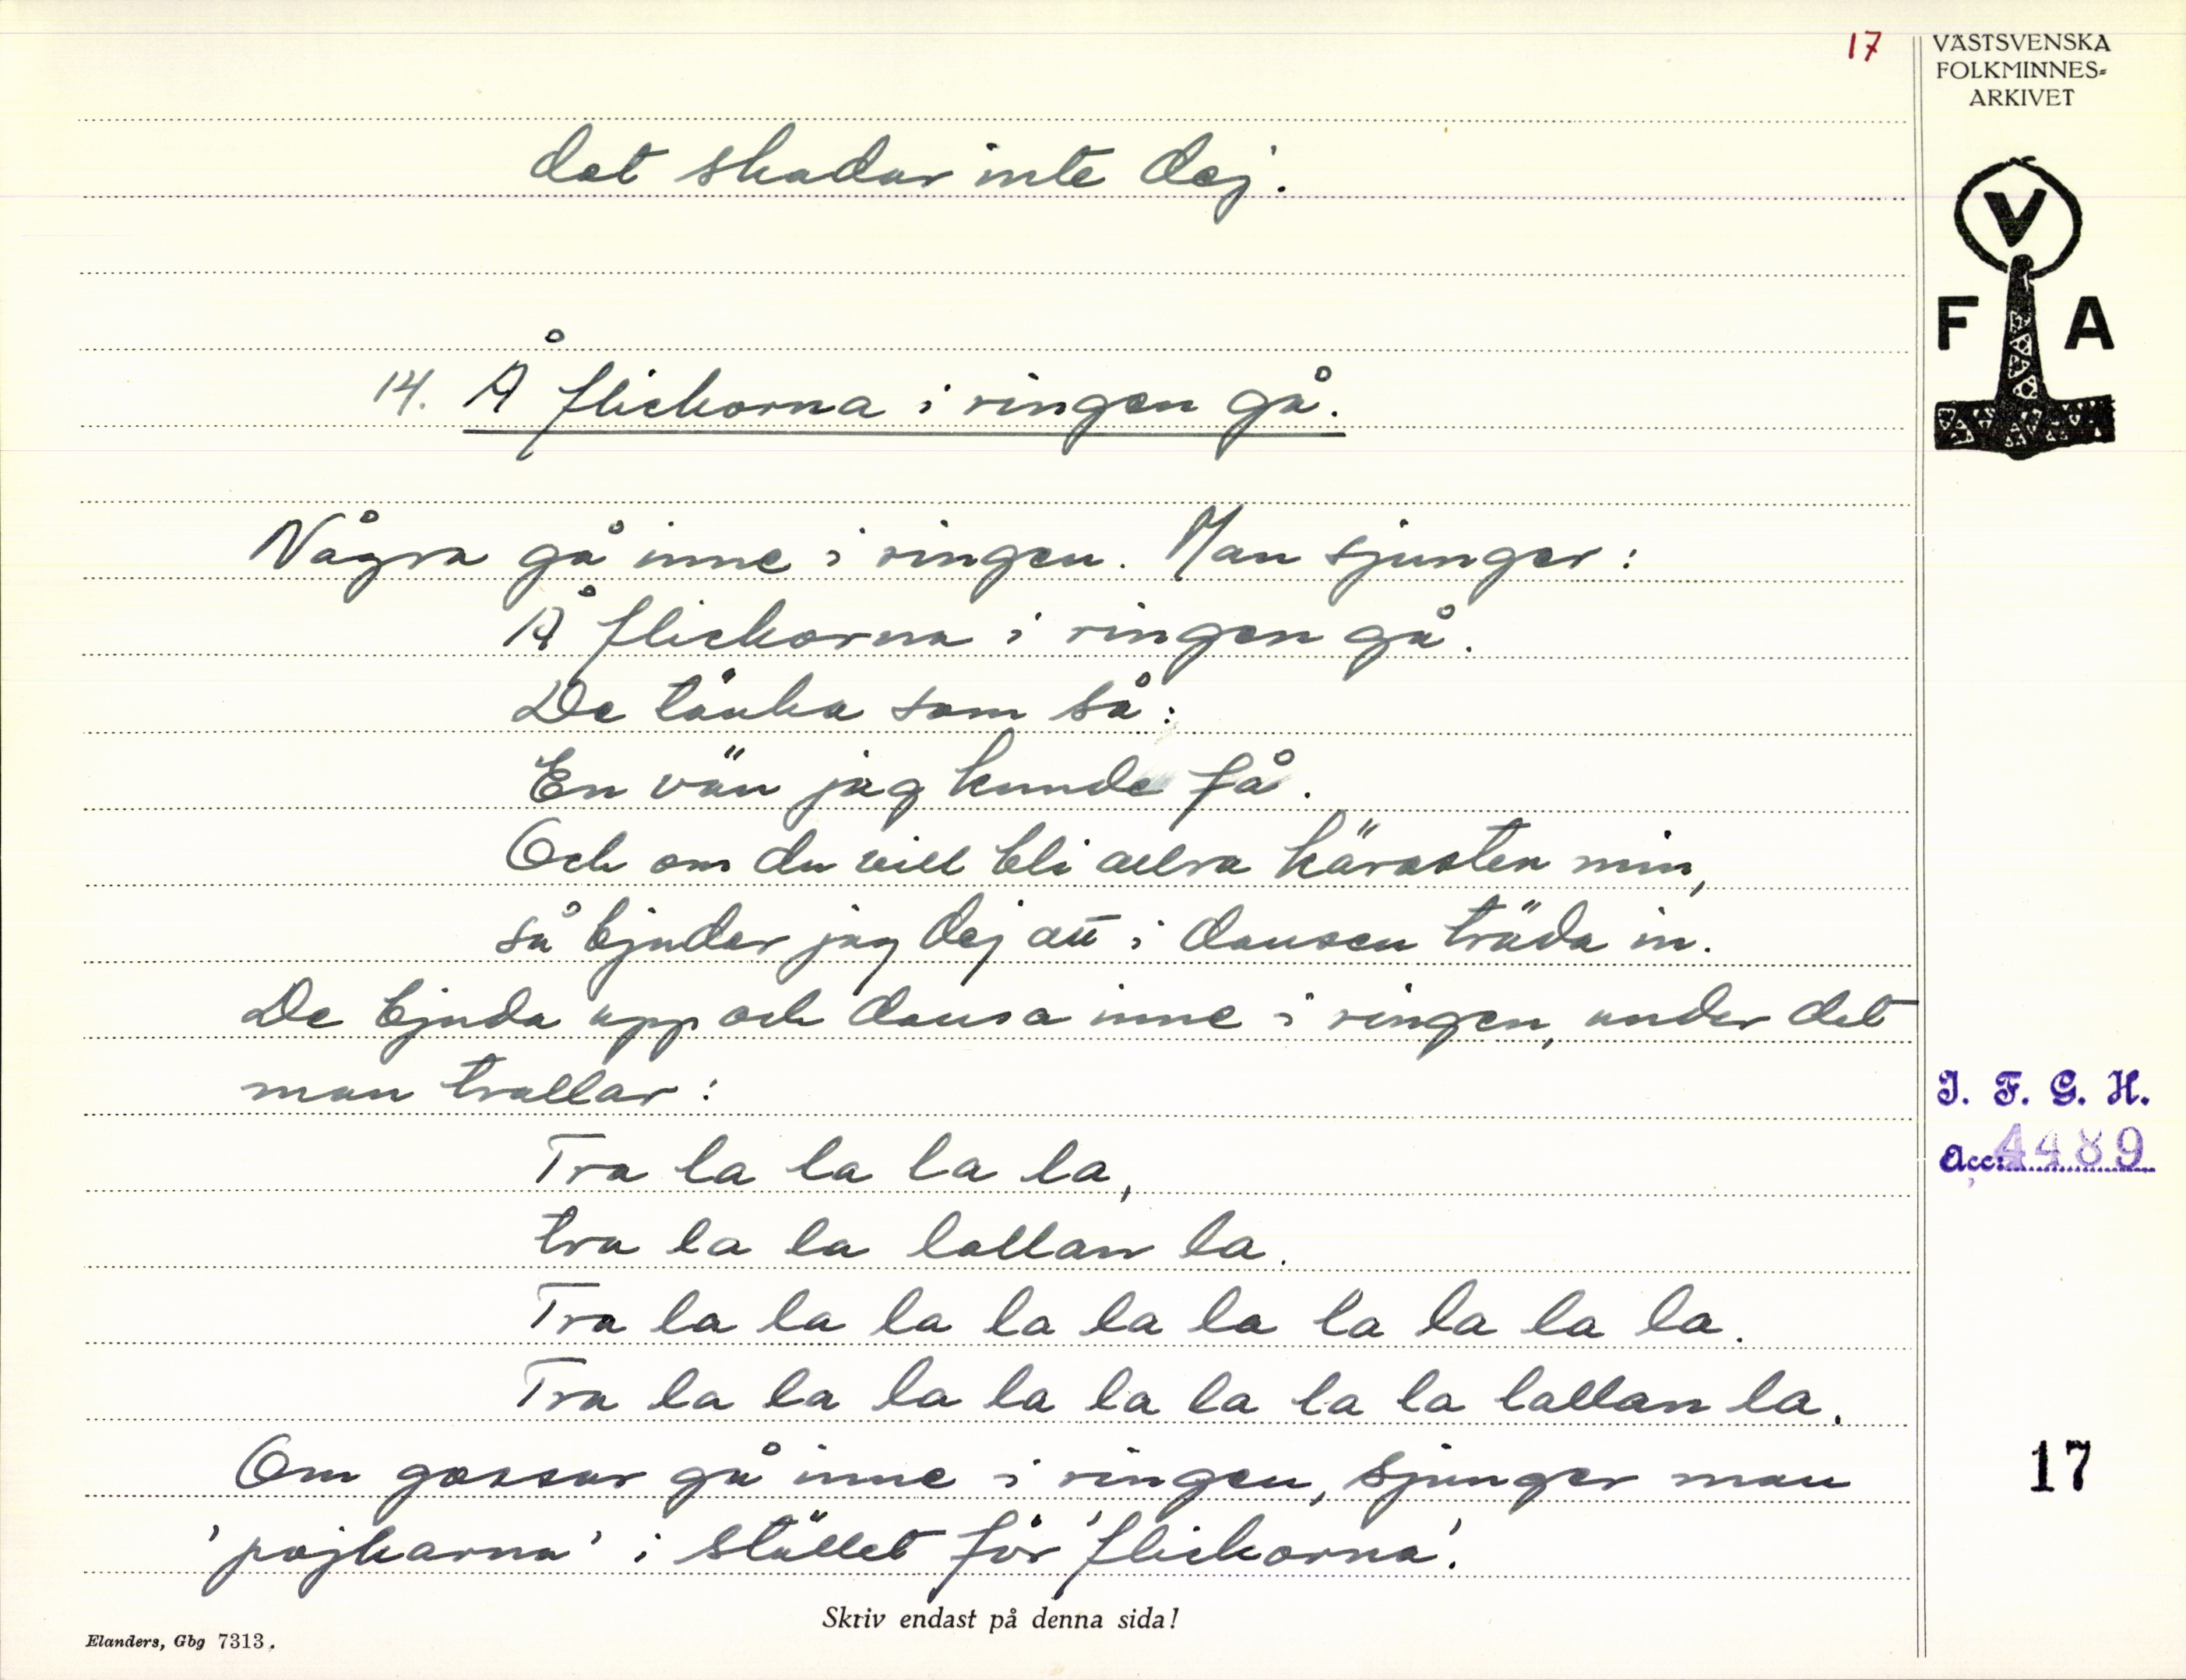 17
VÄSTSVENSKA
FOLKMINNES-
ARKIVET
V
F A
det skadar inte dej.
14. Å flickorna i ringen gå.
Några gå inne i ringen. Man sjunger:
Å flickorna i ringen gå.
De tänka som så:
En vän jag kunde få.
Och om du vill bli allra kärasten min,
så bjuder jag dej att i dansen träda in.
De bjuda upp och dansa inne i ringen, under det
man trallar:
Tra la la la la,
tra la la lallan la.
Tra la la la la la la la la la la.
Tra la la la la la la la la lallan la.
Om gossar gå inne i ringen, sjunger man
'pojkarna' i stället för 'flickorna'.
I. F. G. H.
Acc. 4489
17
Skriv endast på denna sida!
Elanders, Gbg 7313.